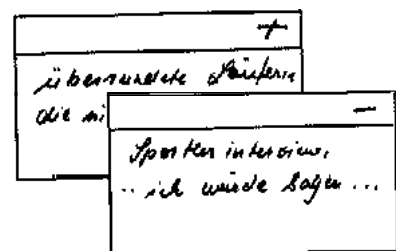 überrundete Läuferin
die ni
Sportlerinterview,
.. ich würde sagen ...